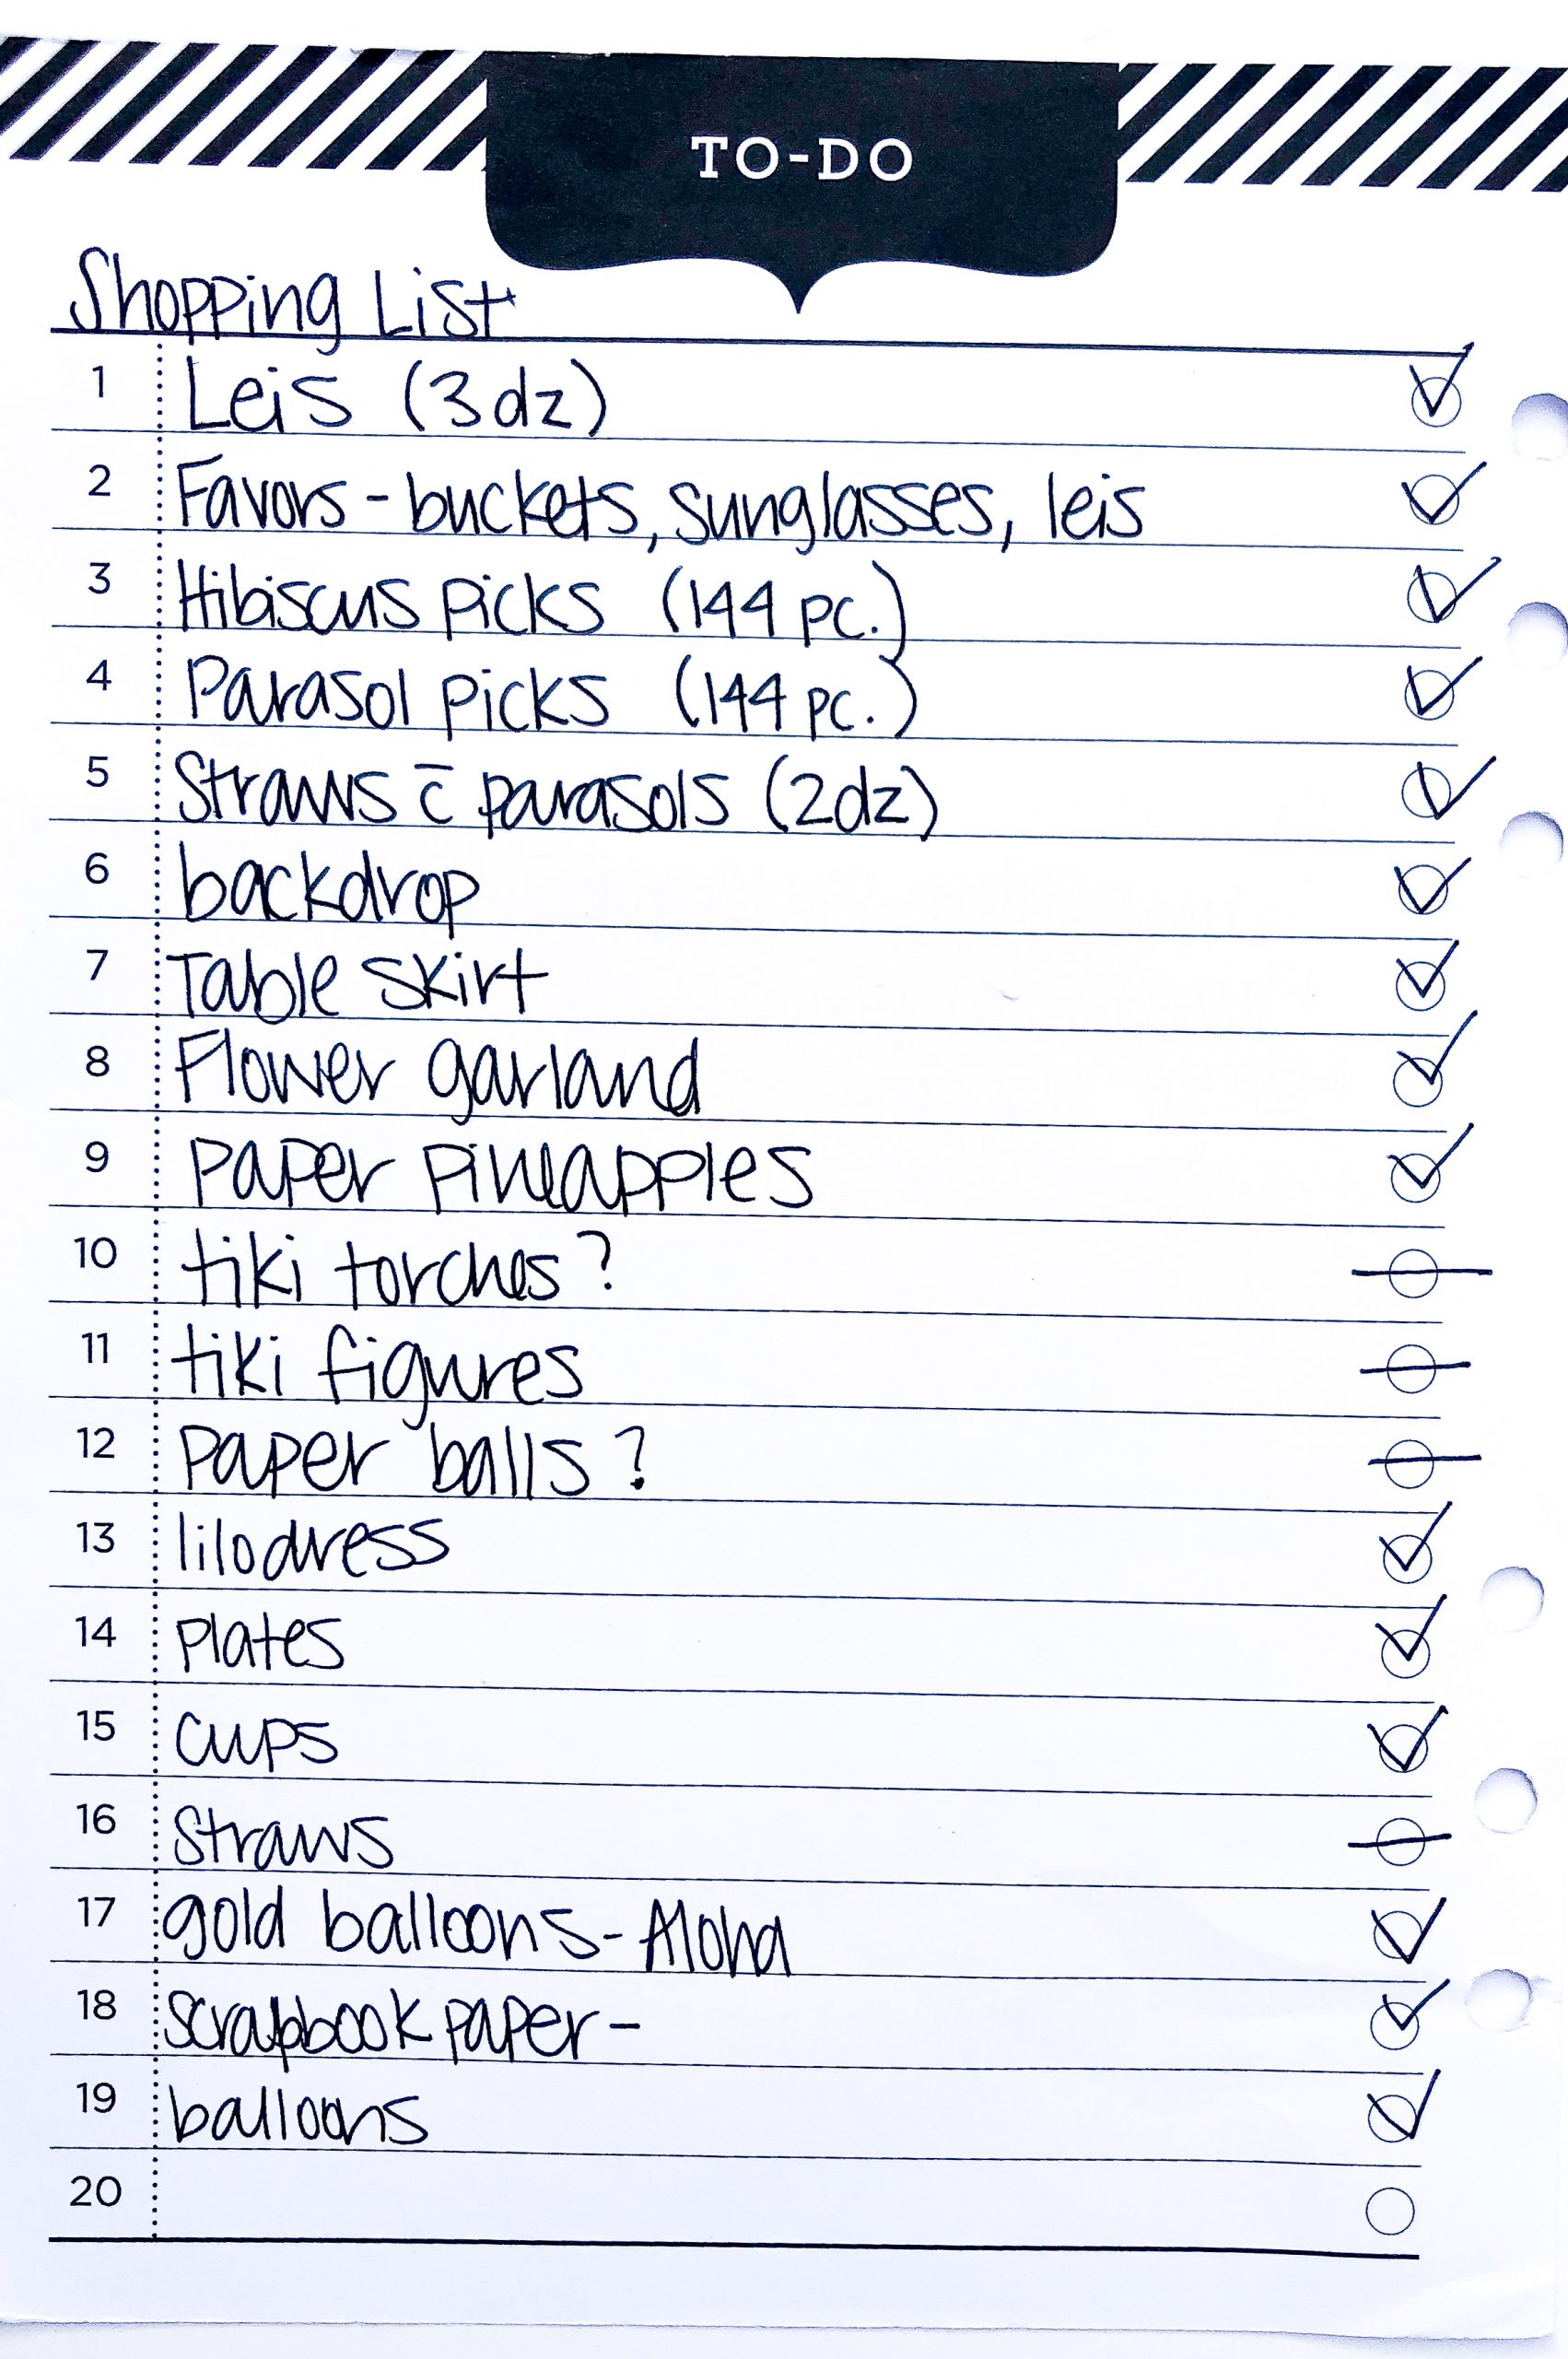 TO-DO
Shopping List
1 Leis (3dz)
2 Favors - buckets, sunglasses, leis
3 Hibiscus picks (144 pc.)
4 Parasol picks (144 pc.)
5 Straws c̄ parasols (2dz)
6 backdrop
7 Table skirt
8 Flower garland
9 paper pineapples
10 tiki torches?
11 tiki figures
12 paper balls?
13 lilo dress
14 plates
15 cups
16 straws
17 gold balloons - Aloha
18 scrapbook paper -
19 balloons
20